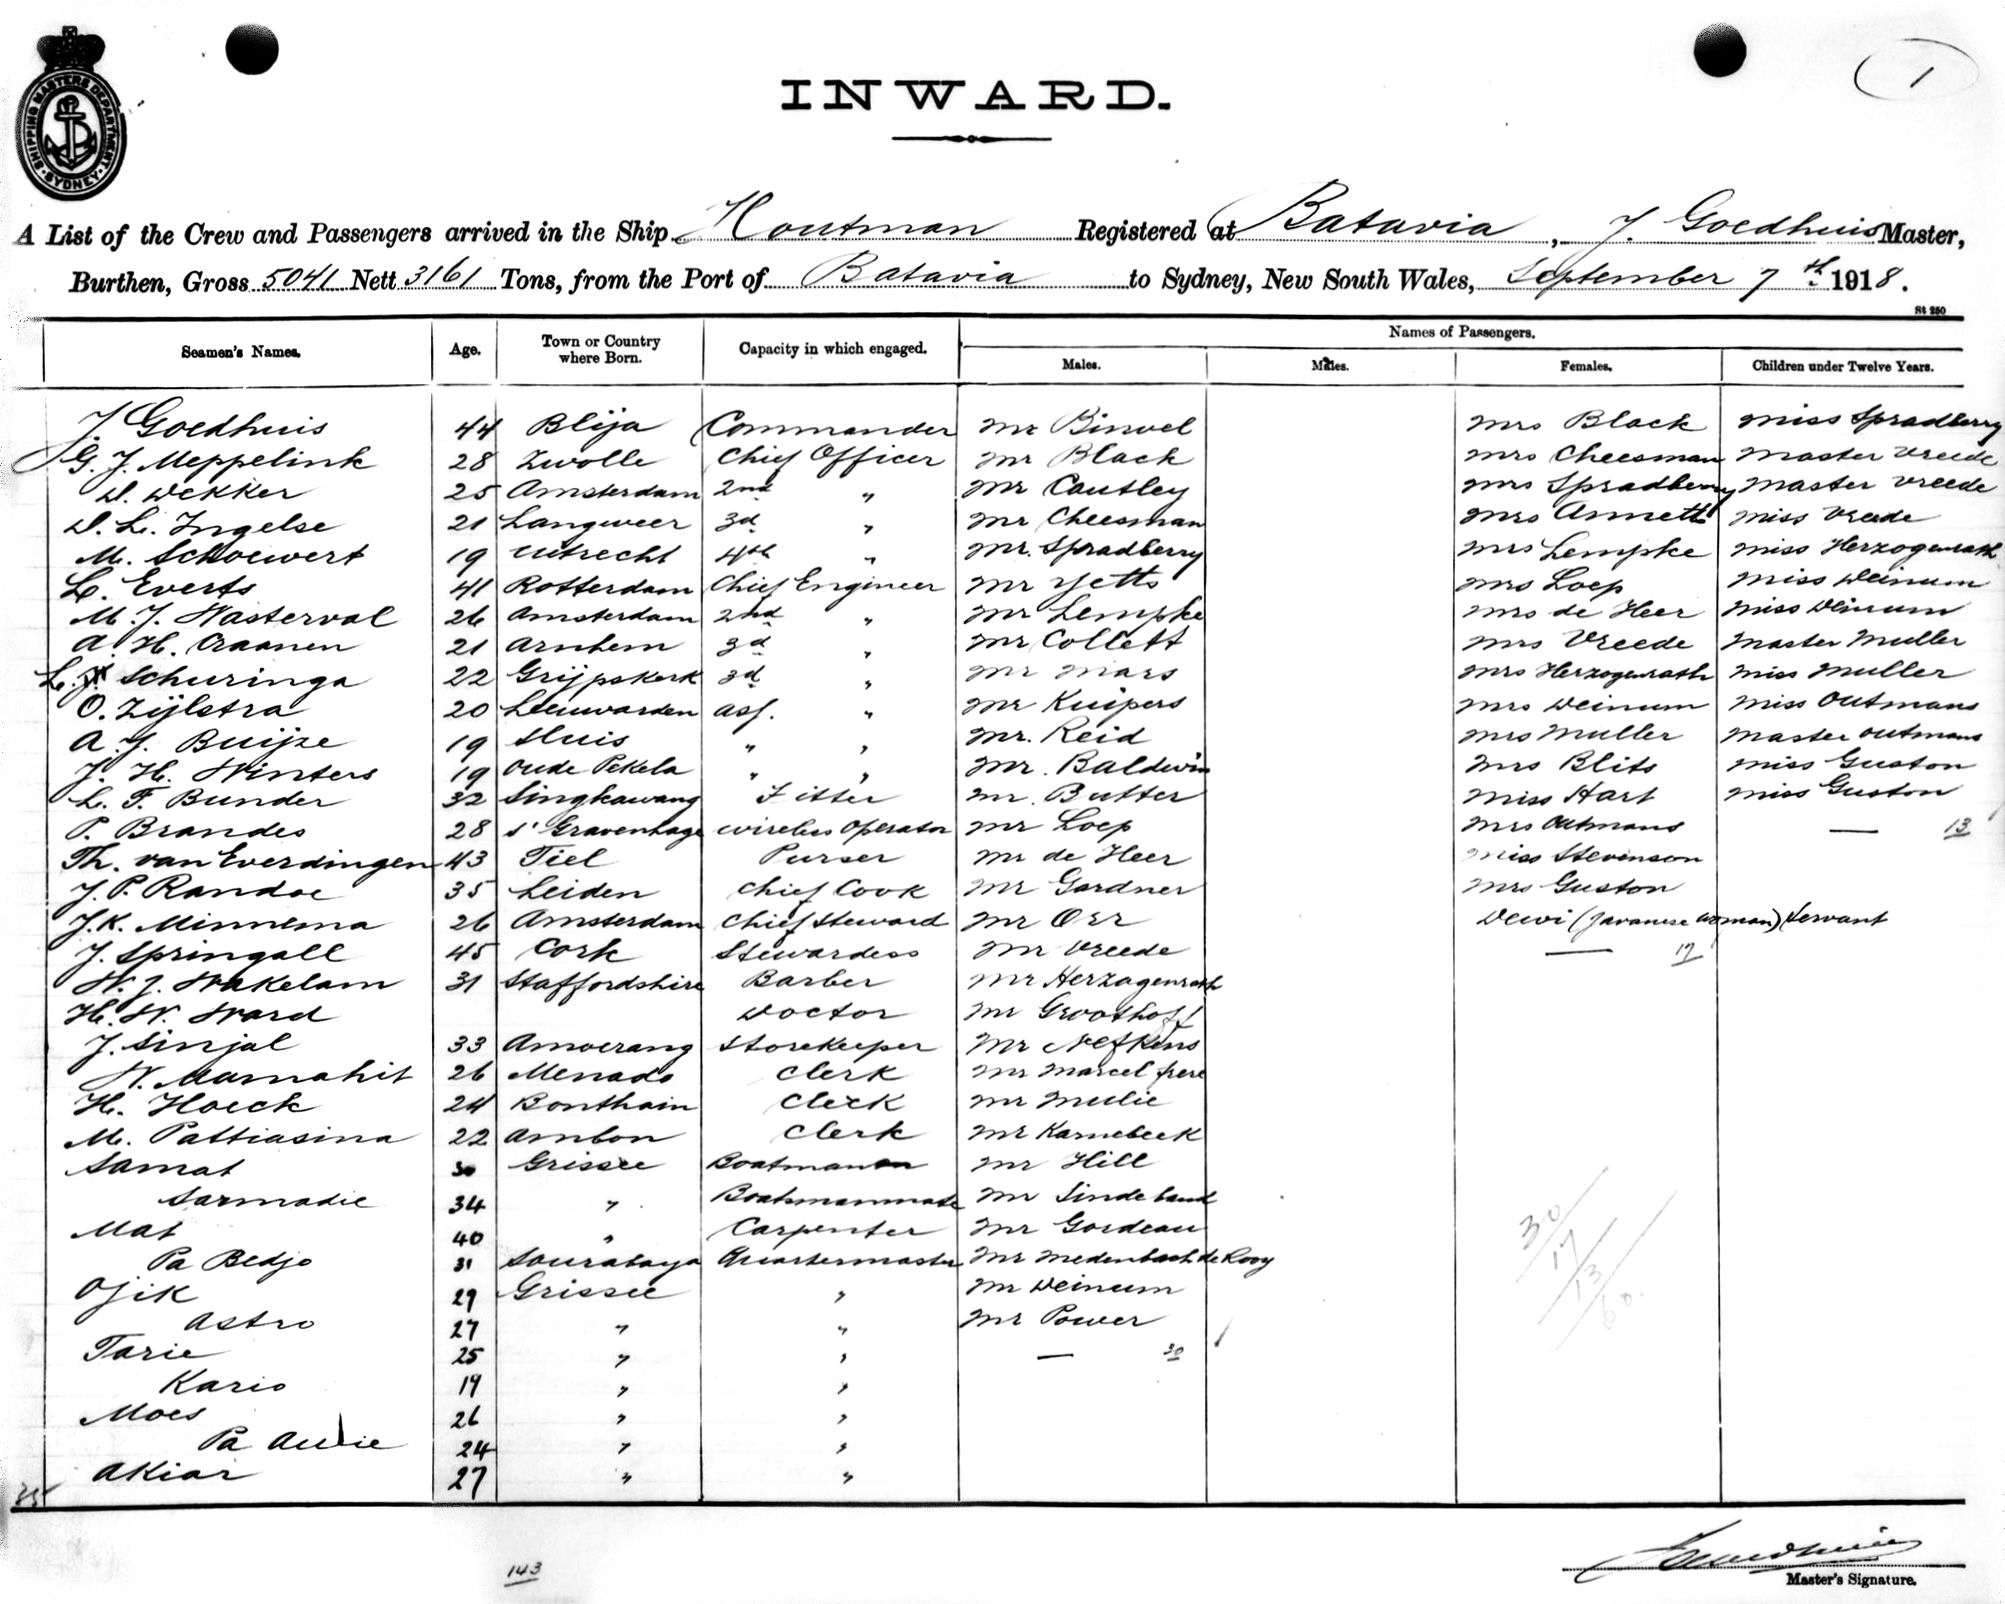 SHIPPING MASTERS DEPARTMENT
SYDNEY
1
INWARD.
A List of the Crew and Passengers arrived in the Ship Houtman Registered at Batavia, J. Goedhuis Master,
Burthen, Gross 5041 Nett 3161 Tons, from the Port of Batavia to Sydney, New South Wales, September 7th 1918.
St 250
Names of Passengers.
Seamen's Names. Age. Town or Country where Born. Capacity in which engaged. Males. Males. Females. Children under Twelve Years.
J. Goedhuis 44 Blija Commander Mr Binvel Mrs Black Miss Spradberry
G. J. Meppelink 28 Zwolle Chief Officer Mr Black Mrs Cheesman Master Vreede
D. Dekker 25 Amsterdam 2nd " Mr Cautley Mrs Spradberry Master Vreede
D. L. Ingelse 21 Langweer 3d " Mr Cheesman Mrs Annett Miss Vreede
M. Schoewert 19 Utrecht 4th " Mr. Spradberry Mrs Lempke Miss Herzogenrath
L. Everts 41 Rotterdam Chief Engineer Mr Yetts Mrs Loep Miss Deinum
M. J. Wasterval 26 Amsterdam 2nd " Mr Lempke Mrs de Heer Miss Deinum
A. H. Craanen 21 Arnhem 3d " Mr Collett Mrs Vreede Master Muller
L. Schuringa 22 Grijpskerk 3d " Mr Mars Mrs Herzogenrath Miss Muller
O. Zijlstra 20 Leeuwarden ass. " Mr Kuipers Mrs Deinum Miss Outmans
A. J. Buijze 19 Sluis " " Mr. Reid Mrs Muller Master Outmans
J. H. Winters 19 Oude Pekela " " Mr. Baldwin Mrs Blits Miss Guston
L. F. Bunder 32 Singkawang Fitter Mr. Butter Miss Hart Miss Guston
P. Brandes 28 s' Gravenhage Wireless Operator Mr Loep Mrs Outmans — 13
Th. van Everdingen 43 Tiel Purser Mr de Heer Miss Stevenson
J. P. Randoe 35 Leiden Chief Cook Mr Gardner Mrs Guston
J. K. Minnema 26 Amsterdam Chief Steward Mr Orr Dewi (Javanese woman) Servant
J. Springall 45 Cork Stewardess Mr Vreede — 17
W. J. Wakelam 31 Staffordshire Barber Mr Herzogenrath
H. W. Ward Doctor Mr Groothoff
J. Sinjal 33 Amoerang Storekeeper Mr Nefkens
W. Mamahit 26 Menado Clerk Mr Marcel frere
H. Hoeck 24 Bonthain Clerk Mr Mulie
M. Pattiasina 22 Ambon Clerk Mr Karnebeek
Samat 30 Grissee Boatman Mr Hill
Sarmadie 34 " Boatsmanmate Mr Lindeband
Mat 40 " Carpenter Mr Gordeau
Pa Bedjo 31 Sourabaya Quartermaster Mr Medenbach de Rooy
Ojik 29 Grissee " Mr Deinum
Astro 27 " " Mr Power
Tarie 25 " " — 30
Kario 19 " "
Moes 26 " "
Pa 24 " "
Akiar 27 " "
35
30
17
13
60.
143
Master's Signature.